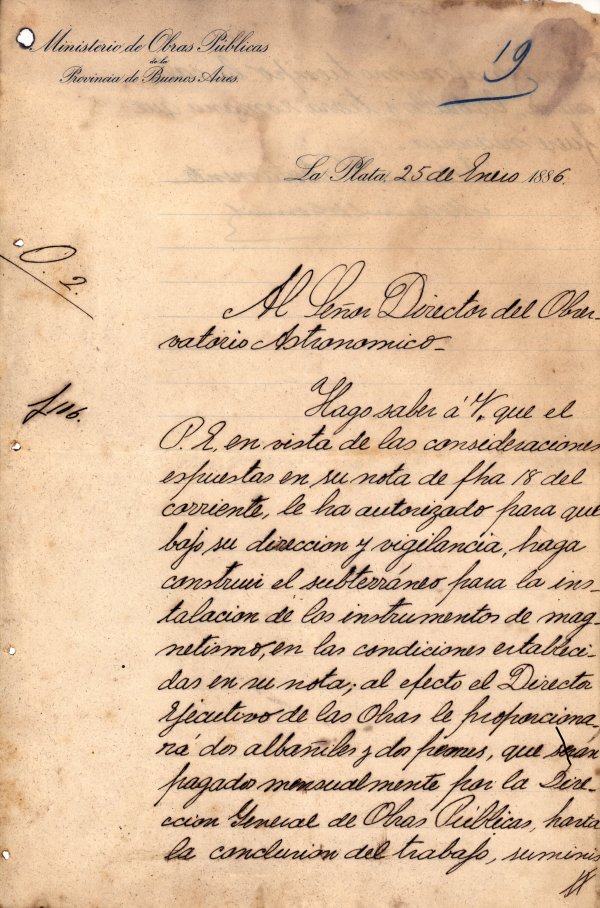 Ministerio de Obras Públicas
de la
Provincia de Buenos Aires.
19
La Plata, 25 de Enero 1886.
O. 2.
Al Señor Director del Obser-
vatorio Astronomico_
Hago saber á V. que el
P. E. en vista de las consideraciones
espuestas en su nota de fha 18 del
corriente, le ha autorizado para que
bajo su direccion y vigilancia, haga
construir el subterráneo para la ins-
talacion de los instrumentos de mag-
netismo, en las condiciones estableci-
das en su nota; al efecto el Director
Ejecutivo de las Obras le proporciona-
rá dos albañiles y dos peones, que serán
pagados mensualmente por la Dire-
ccion General de Obras Públicas, hasta
la conclusion del trabajo, suminis